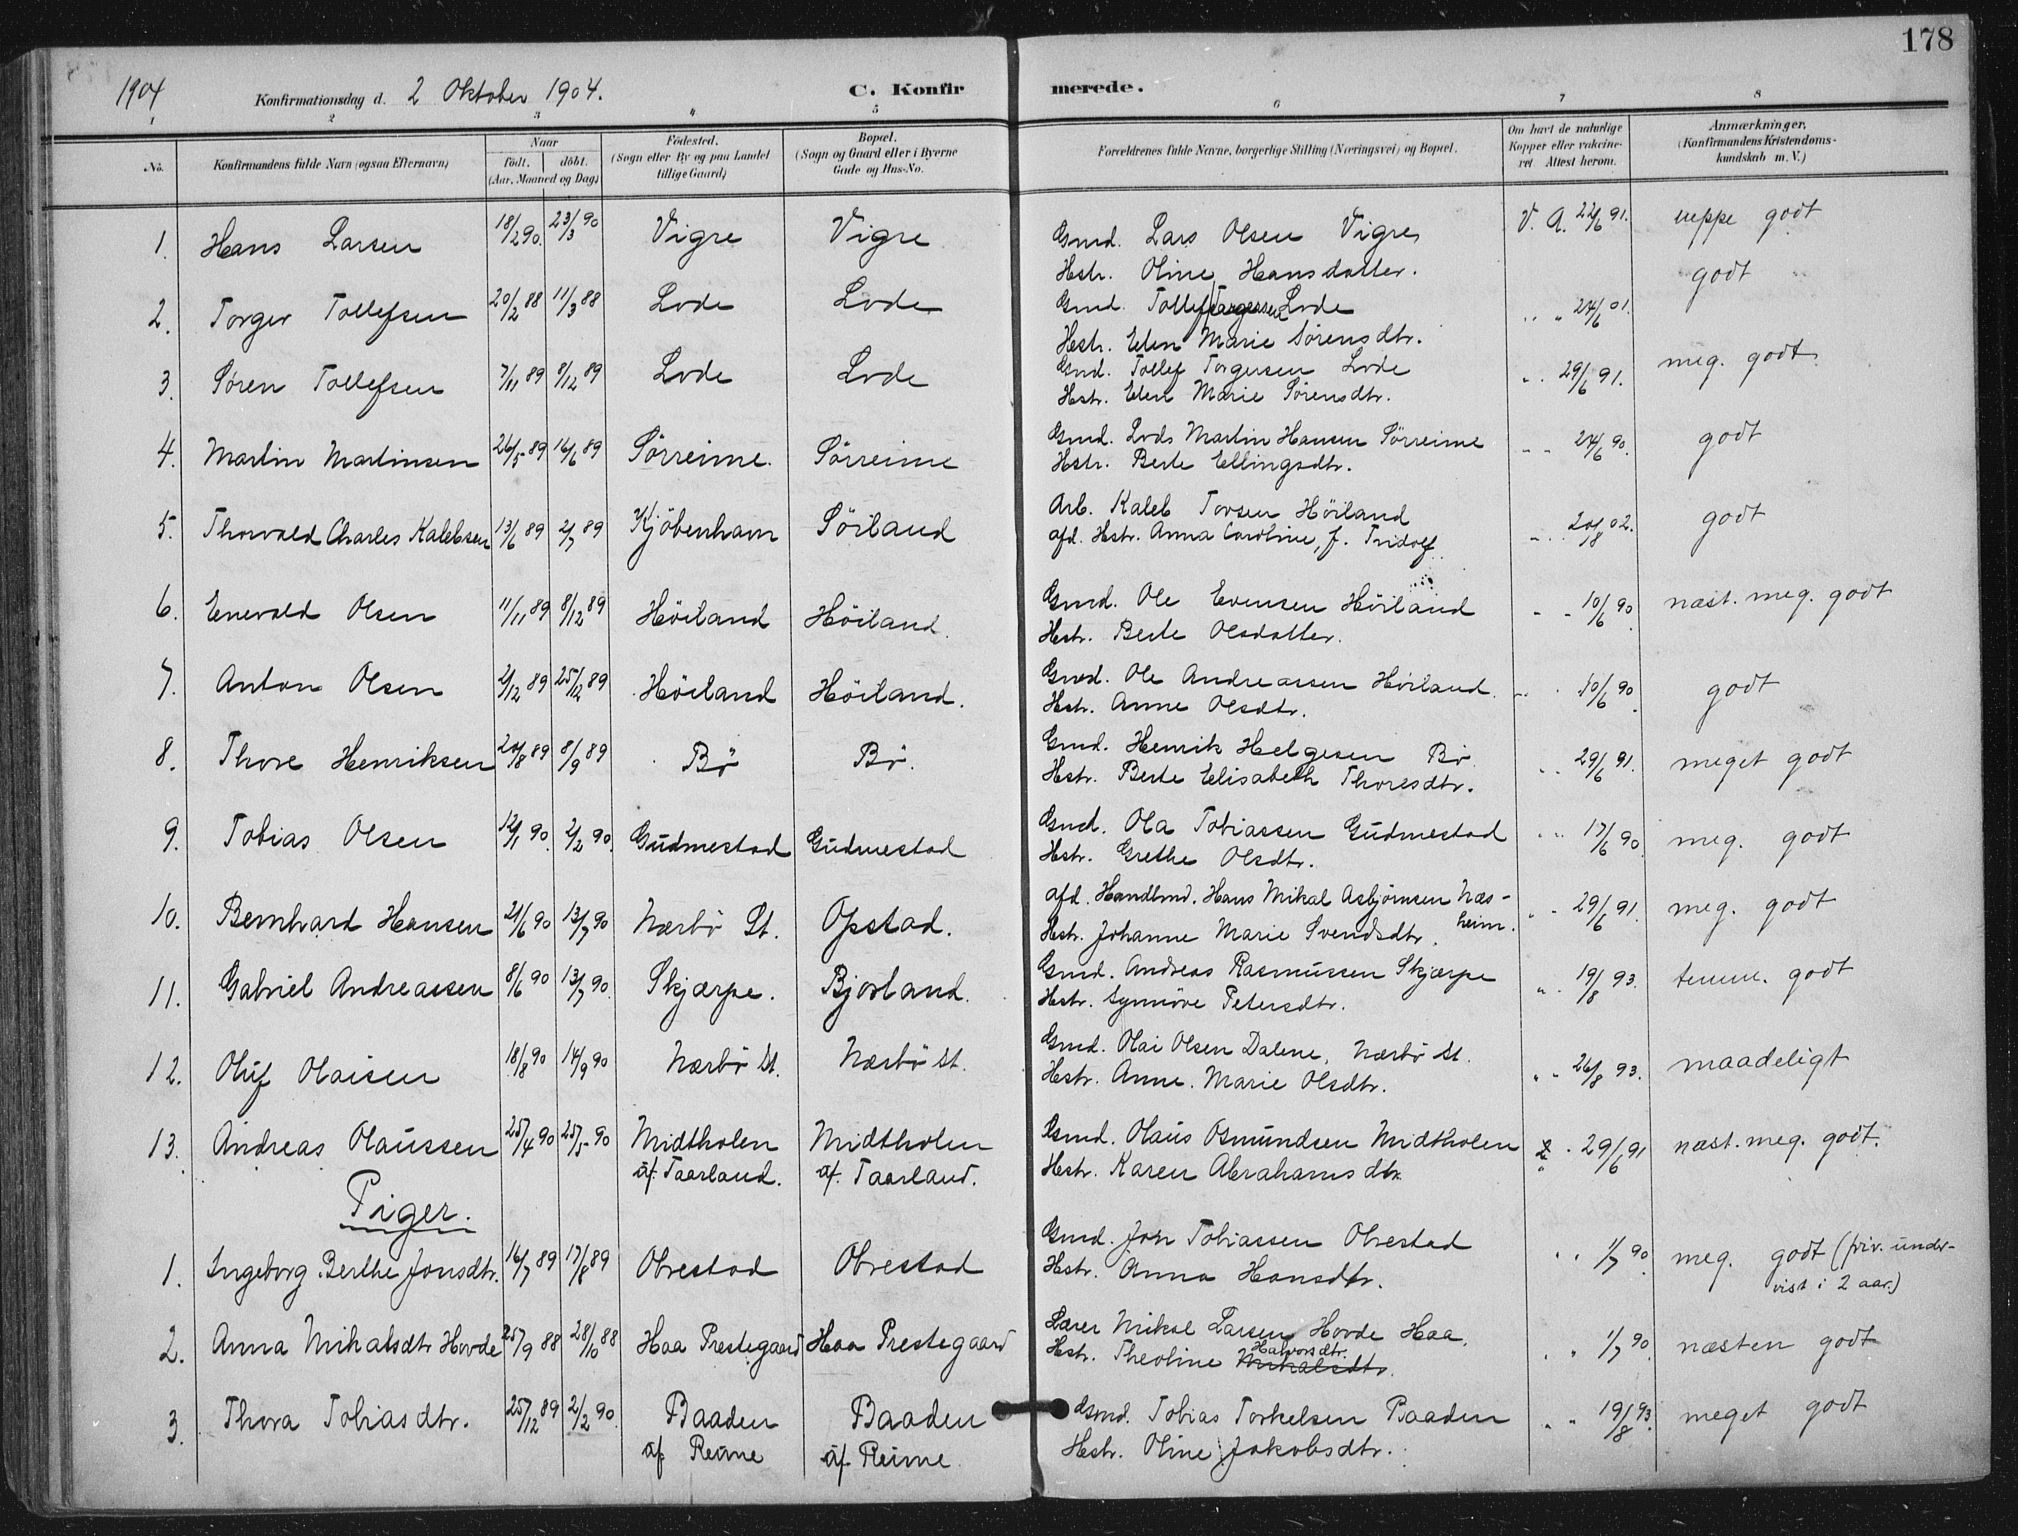 178
1904 Konfirmationsdag d. 2 Oktober 1904. C. Konfir merede.
1 2 3 4 5 6 7 8
No. Konfirmandens fulde Navn (ogsaa Efternavn) Naar født. døbt. (Aar, Maaned og Dag) Fødested. (Sogn eller By og paa Landet tillige Gaard) Bopæl. (Sogn og Gaard eller i Byerne Gade og Hus-No. Forældrenes fulde Navne, borgerlige Stilling (Næringsvei) og Bopæl. Om havt de naturlige Kopper eller vakcineret. Attest herom. Anmærkninger, (Konfirmandens Kristendomskundskab m. V.)
1. Hans Larsen 18/2 90. 23/3 90 Vigre Vigre Gmd. Lars Olsen Vigre, V. A. 22/6 91. neppe godt
Hstr. Oline Hansdatter.
2. Torger Tollefsen 20/2 88 11/3 88 Lode Lode Gmd. Tollef Torgersen Lode " " 24/6 01. godt
Hstr. Elen Marie Sørensdtr.
3. Søren Tollefsen 7/11 89 8/12 89 Lode Lode Gmd. Tollef Torgersen Lode " " 29/6 91. meg. godt
Hstr. Elen Marie Sørensdtr.
4. Martin Martinsen 26/5 89 16/6 89 Sørreime. Sørreime Gmd. Lods Martin Hansen Sørreime " " 24/6 90. godt
Hstr. Berte Ellingsdtr.
5. Thorvald Charles Kalebsen 13/6 89 2/7 89 Kjøbenhavn Søiland Arb. Kaleb Torsen Høiland " " 20/8 02. godt
afd. Hstr. Anna Caroline, f.
6. Enevald Olsen 11/11 89 8/12 89 Høiland Høiland. Gmd. Ole Evensen Høiland " " 10/6 90. næst. meg. godt
Hstr. Berte Olsdatter.
7. Anton Olsen 2/12 89 25/12 89 Høiland Høiland. Gmd. Ole Andreassen Høiland. " " 10/6 90. godt
Hstr. Anne Olsdtr.
8. Thore Henriksen 20/8 89 8/9 89 Bø Bø. Gmd. Henrik Helgesen Bø. " " 29/6 91. meget godt
Hstr. Berte Elisabeth Thoresdtr.
9. Tobias Olsen 12/1 90. 2/2 90. Gudmestad Gudmestad Gmd. Ola Tobiassen Gudmestad " " 17/6 90. meg. godt
Hstr. Grethe Olsdtr.
10. Bernhard Hansen 21/6 90 13/7 90 Nærbø St. Opstad. afd. Handlmd. Hans Mikal Asbjørnsen Næs- " " 29/6 91. meg. godt
Hstr. Johanne Marie Svendsdtr. heim.
11. Gabriel Andreassen 8/6 90 13/7 90. Skjærpe. Bjorland. Gmd. Andreas Rasmussen Skjærpe " " 19/8 93. temm. godt
Hstr. Synnøve Petersdtr.
12. Oluf Olaisen 18/8 90 14/9 90 Nærbø St. Nærbø St. Gmd. Olai Olsen Dalene, Nærbø St. " " 26/8 93. maadeligt
Hstr. Anne Marie Olsdtr.
13. Andreas Olaussen 25/4 90 25/5 90 Midtholen Midtholen Gmd. Olaus Osmundsen Midtholen " 29/6 91 næst. meg. godt.
af Taarland. af. Taarland. Hstr. Karen Abrahamsdtr.
Piger.
1. Ingeborg Berthe Jonsdtr. 16/7 89 17/8 89 Obrestad Obrestad Gmd. Jon Tobiassen Obrestad " " 1/7 90. meg. godt (priv. under-
Hstr. Anna Hansdtr. vist i 2 aar.)
2. Anna Mikalsdtr Hovde 25/9 88 28/10 88 Haa Prestegaard Haa Prestegaard Lærer Mikal Larsen Hovde Haa, " " 1/7 90. næsten godt
Hstr. Theoline Mikalsdtr. Halvorsdtr.
3. Thora Tobiasdtr. 25/12 89 2/2 90. Baaden Baaden Gmd. Tobias Torkelsen Baaden " " 19/8 93. meget godt
af Reime af Reime. Hstr. Oline Jakobsdtr.